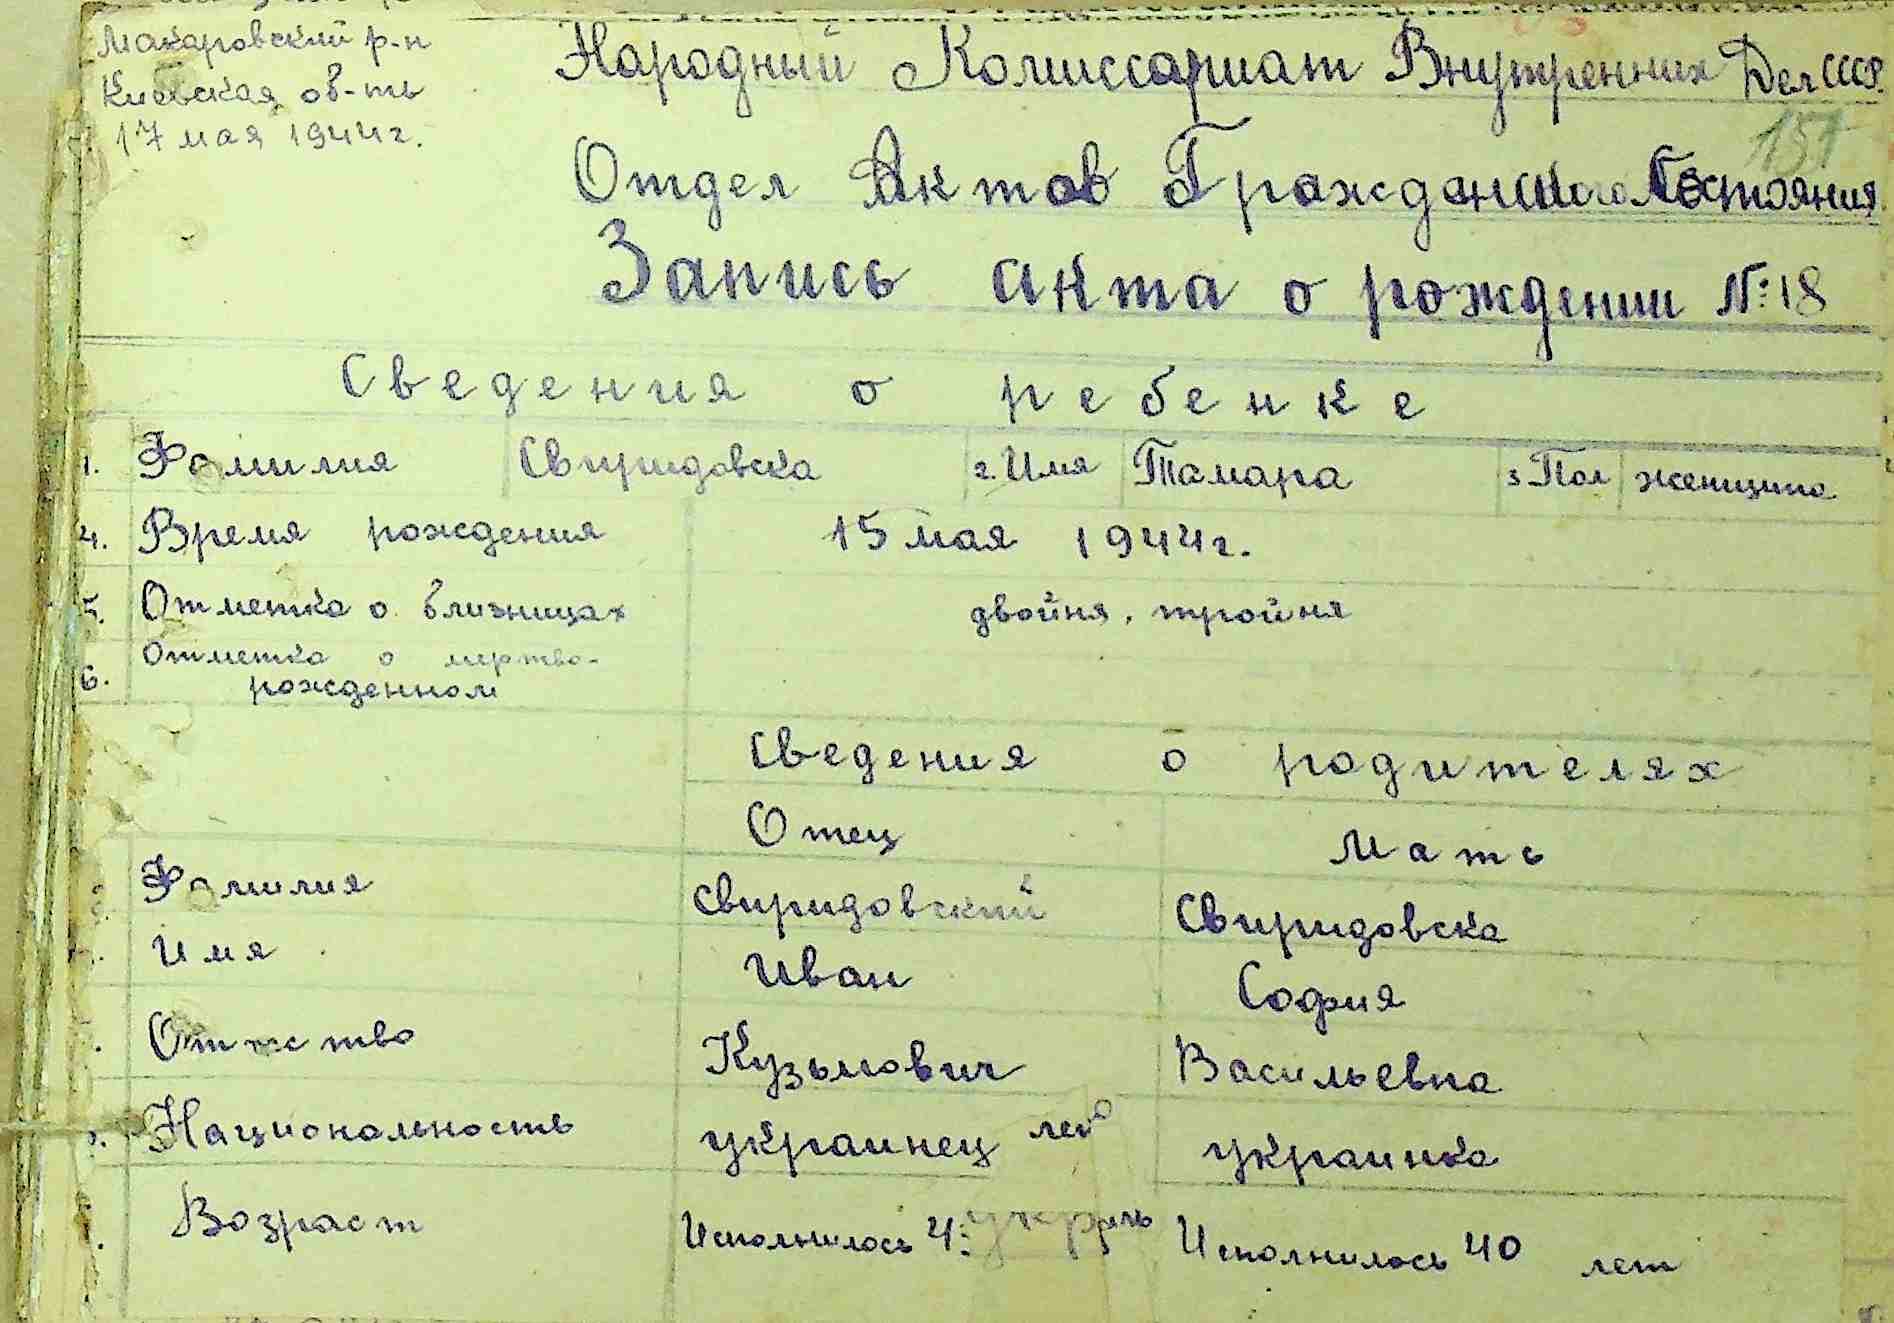 Макаровский р-н
Киевская об-ть
17 мая 1944г.
Народный Комиссариат Внутренних Дел СССР.
157
Отдел Актов Гражданского Состояния
Запись акта о рождении №18
Сведения о ребенке
1. Фамилия Свиридовска 2. Имя Тамара 3 Пол женщина
4. Время рождения 15 мая 1944г.
5. Отметка о близницах двойня, тройня
6. Отметка о мертво-
рожденном
Сведения о родителях
Отец Мать
Фамилия Свиридовский Свиридовска
Имя Иван София
Отчество Кузьмович Васильевна
Национальность украинец украинка
Возраст Исполнилось Исполнилось 40 лет